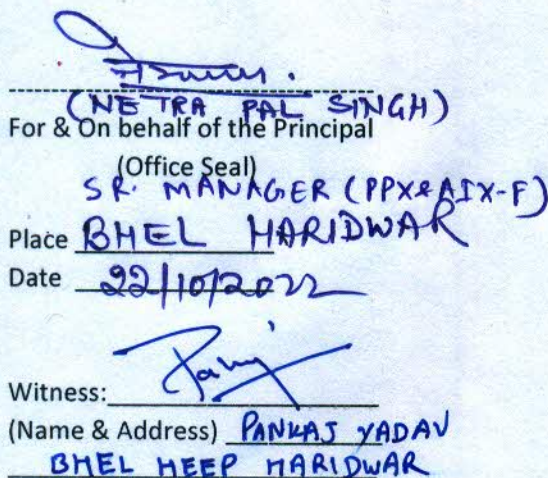 (NETRA PAL SINGH)
For & On behalf of the Principal
(Office Seal)
SR. MANAGER (PPX & AIX-F)
Place BHEL HARIDWAR
Date 22/10/2022
Witness:
(Name & Address) PANKAJ YADAV
BHEL HEEP HARIDWAR